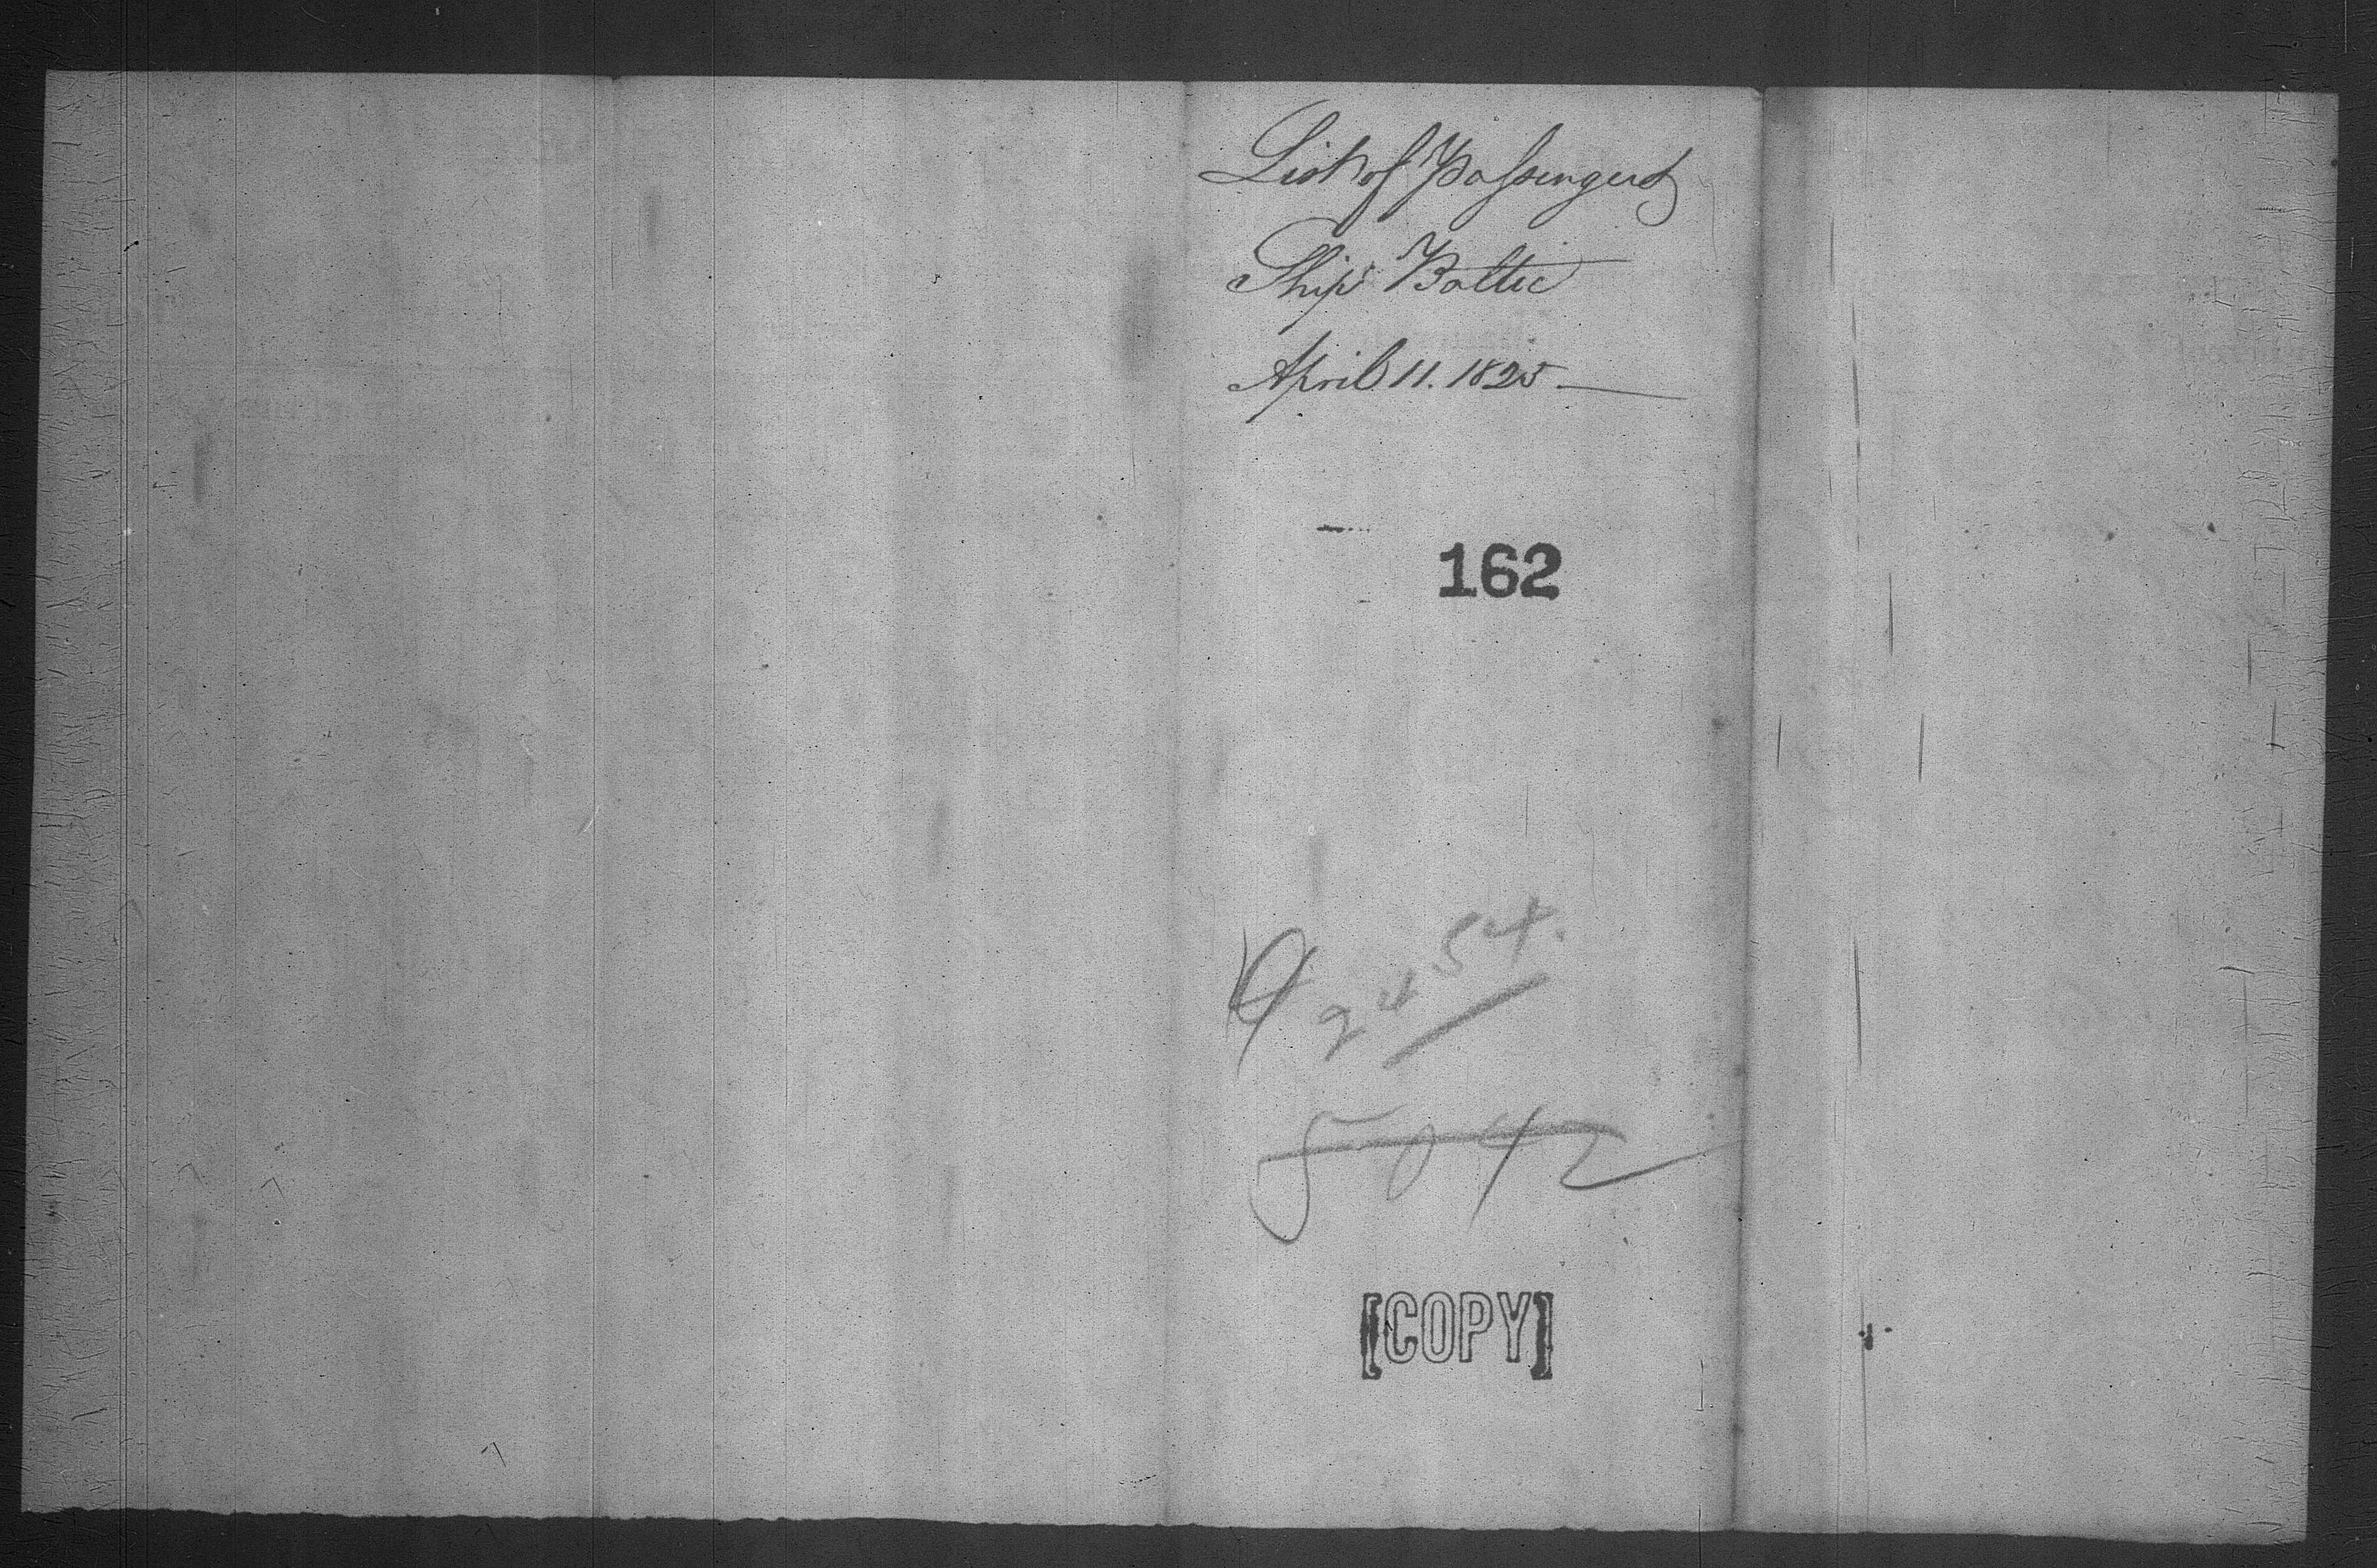 List of Passengers
Ship Baltic
April 11. 1825
162
2454.
5042
[COPY]